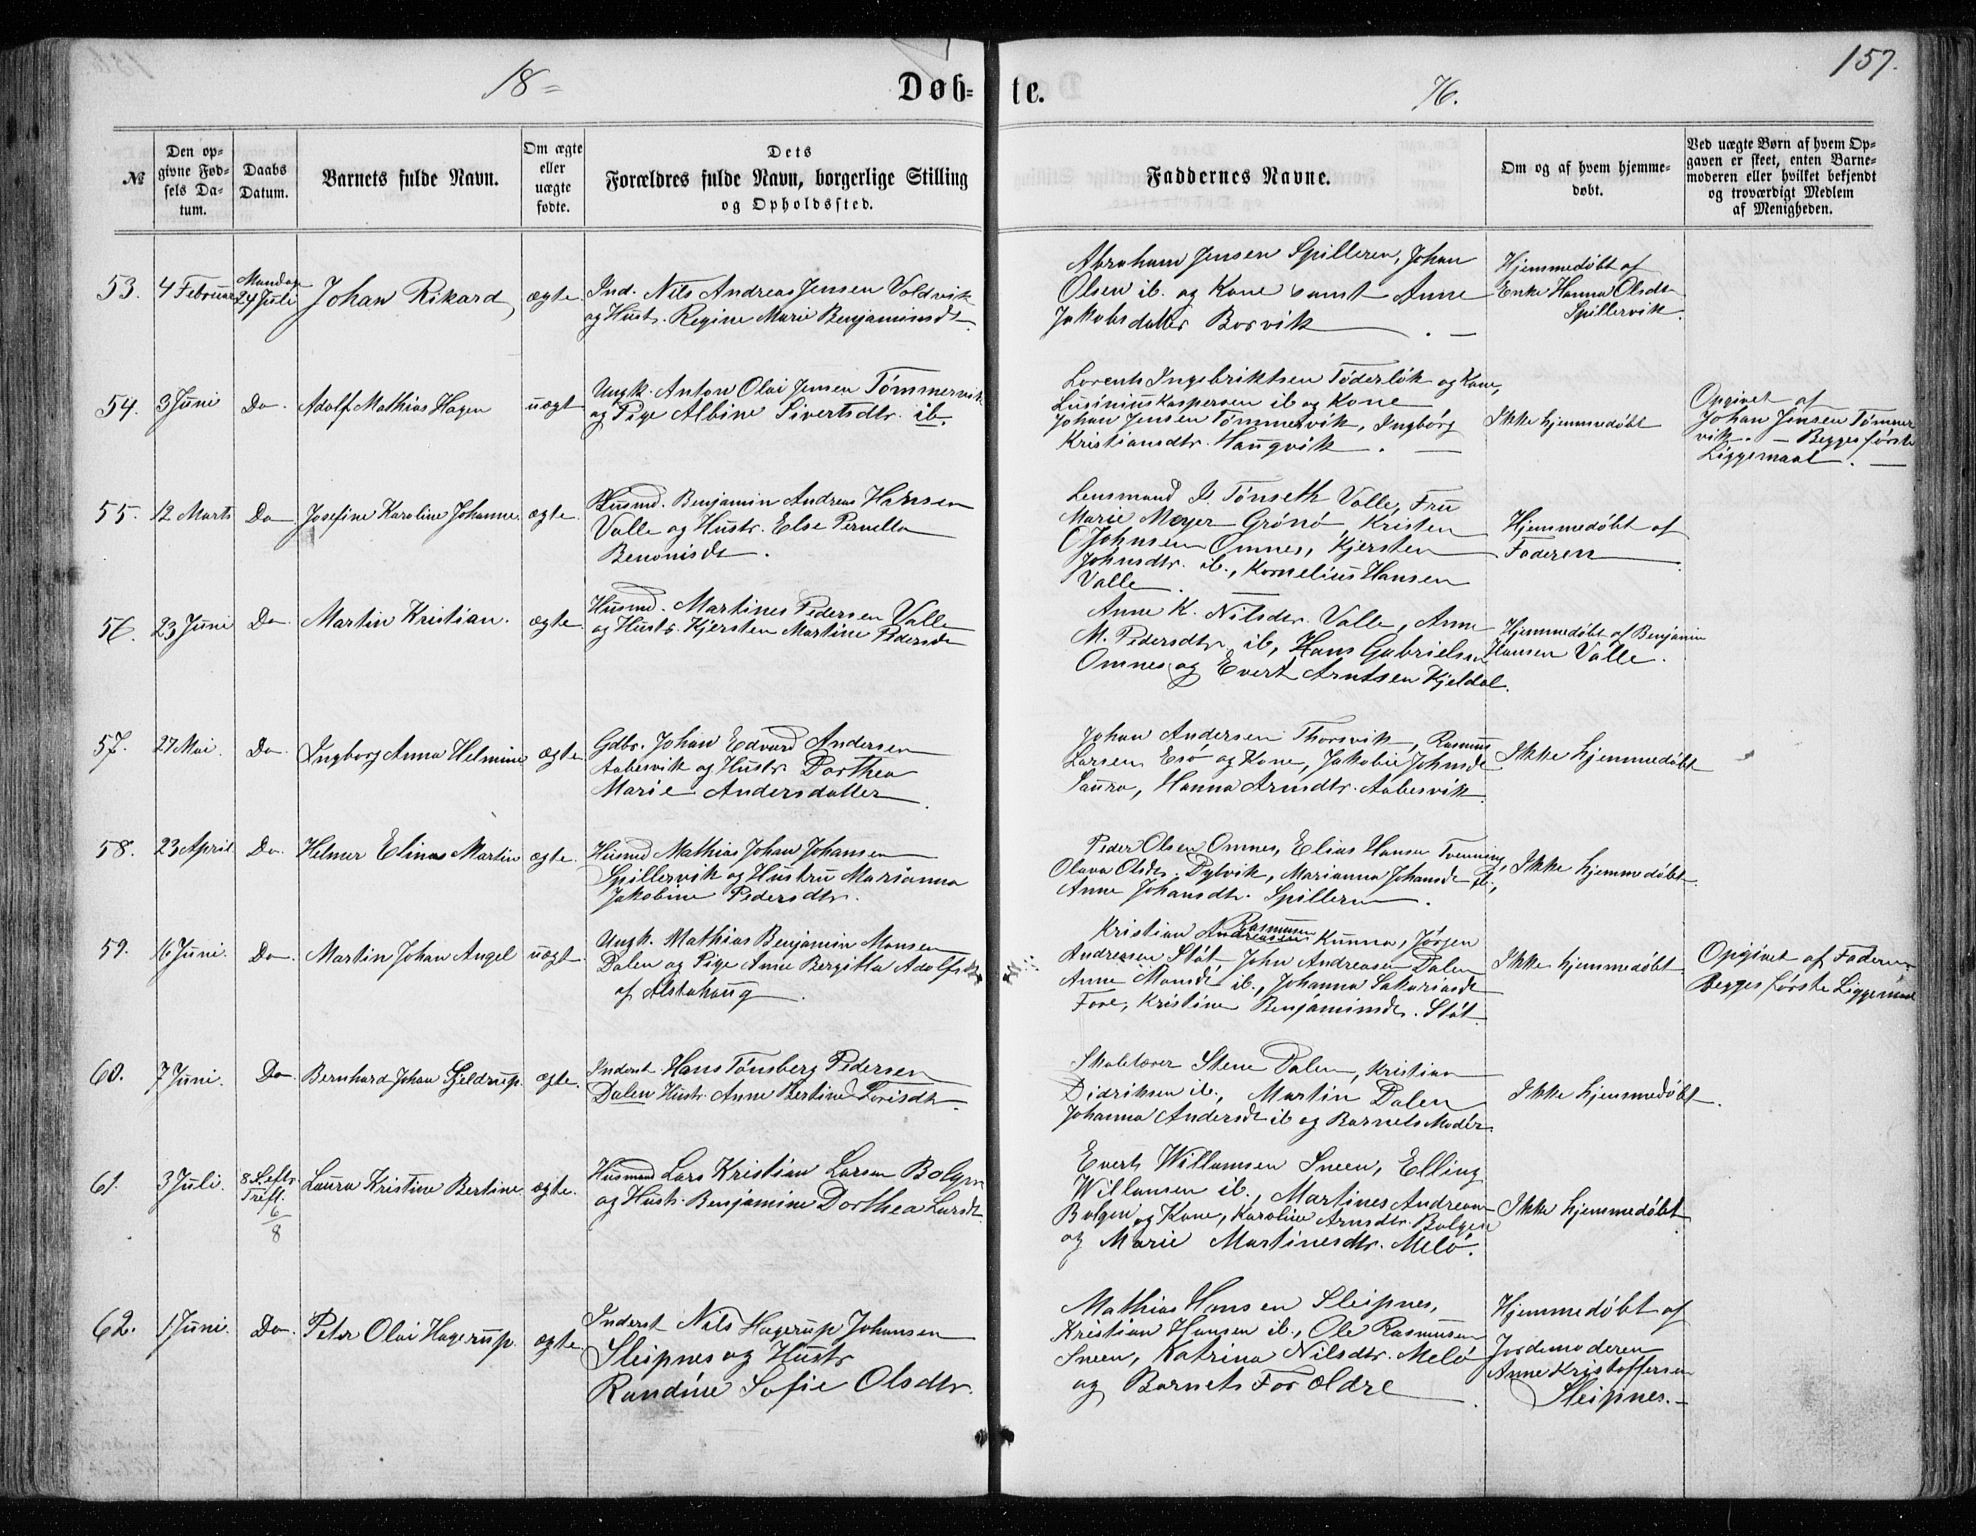 18=
Døb=
te.
76.
157.
№
Den op-
givne Fød-
sels Da-
tum.
Daabs
Datum.
Barnets fulde Navn.
Om ægte
eller
uægte
fødte.
Dets
Forældres fulde Navn, borgerlige Stilling
og Opholdssted.
Faddernes Navne.
Om og af hvem hjemme-
døbt.
Ved uægte Børn af hvem Op-
gaven er skeet, enten Barne-
moderen eller hvilket bekjendt
og troværdigt Medlem
af Menigheden.
53.
4 Februar
Mandag
24 Juli
Johan Rikard
ægte
Ind. Nils Andreas Jensen Voldvik
og Hustr. Regine Marie Benjaminsdt.
Abraham Jensen Spilleren, Johan
Olsen ib. og Kone samt Anne
Jakobsdatter Borvik
Hjemmedøbt af
Enke Hanna Olsdtr
Spillervik.
54.
3 Juni
Do.
Adolf Mathias Hagen
uægt
Ungk. Anton Olai Jensen Tømmervik
og Pige Albine Sivertsdtr. ib.
Lorents Ingebriktsen Töderlök og Kone,
Lusinius Kaspersen ib og Kone
Johan Jensen Tømmervik, Ingbörg
Kristiansdtr. Haugvik.
Ikke hjemmedøbt
Opgivet af
Johan Jensen Tømmer
vik. - Begges første
Liggemaal.
55.
12 Marts
Do
Josefine Karoline Johanne
ægte
Husmd. Benjamin Andreas Hansen
Valle og Hustr. Else Pernella
Benonisdt.
Lensmand Tönseth Valle, Fru
Marie Meyer Grönö, Kristen
Johnsen Omnes, Kjersten
Johnsdtr. ib., Kornelius Hansen
Valle
Hjemmedøbt af
Faderen
56.
23 Juni
Do
Martin Kristian.
ægte
Husmd. Martines Pedersen Valle
og Hustr. Kjersten Martine Pedersdt
Anne K. Nilsdtr. Valle, Anne
M. Pedersdtr ib, Hans Gabrielsen
Omnes og Evert Arntsen Kjeldal.
Hjemmedøbt af Benjamin
Hansen Valle.
57.
27 Mai.
Do
Ingborg Anna Helmine
ægte
Gdbr. Johan Edvard Andersen
Aabesvik og Hustr Dorthea
Marie Andersdatter
Johan Andersen Thorsvik, Rasmus
Larsen Esö og Kone, Jakobie Johnsdt
Saura, Hanna Arnsdtr. Aabesvik.
Ikke hjemmedøbt
58.
23 April
Do.
Helmer Elinas Martin
ægte.
Husmd Mathias Johan Johansen
Spillervik og Hustru Marianna
Jakobine Pedersdtr.
Peder Olsen Omnes, Elias Hansen Tvenning,
Olava Olsdtr. Dybvik, Marianna Johansdt ib.,
Anne Johansdtr. Spilleren.
Ikke hjemmedøbt.
59.
16 Juni.
Do
Martin Johan Angel
uægt.
Ungk. Mathias Benjamin Monsen
Dalen og Pige Anne Bergitta Adolfsdt
af Alstahaug.
Kristian Rasmusen
Andreasen Kunna, Jörgen
Andreasen Stöt, John Andreasen Dalen
Anne Monsdt ib., Johanna Sakariasdt
Fore, Kristine Benjaminsdr. Stöt.
Ikke hjemmedøbt
Opgivet af Faderen
Begges første Liggemaal
60.
7 Juni.
Do
Bernhard Johan Gjeldrup.
ægte.
Inderst Hans Tönsberg Pedersen
Dalen Hustr. Anne Bertine Torisdtr.
Skolelærer Stene Dalen, Kristian
Didriksen ib., Martin Dalen
Johanna Andersdt ib og Barnets Moder
Ikke hjemmedøbt.
61.
3 Juli.
8 S. eftr.
Trefl.
6/8
Laura Kristine Bertine
ægte.
Husmand Lars Kristian Larsen Bolgen
og Hustr. Benjamine Dorthea Larsdt
Evert Willumsen Sneen, Elling
Willumsen ib., Martines Andreasen
Bolgen og Kone, Karoline Arnsdtr. Bolgen
og Marie Martinesdtr. Melö.
Ikke hjemmedøbt
62.
1 Juni.
Do.
Peter Olai Hagerup.
ægte
Inderst Nils Hagerup Johansen
Sleipnes og Hustr
Randine Sofie Olsdtr.
Mathias Hansen Sleipnes,
Kristian Hansen ib., Ole Rasmusen
Sneen, Katrina Nilsdtr. Melö
og Barnets Forældre
Hjemmedøbt af
Jordemoderen
Anne Kristoffersen
Sleipnes.